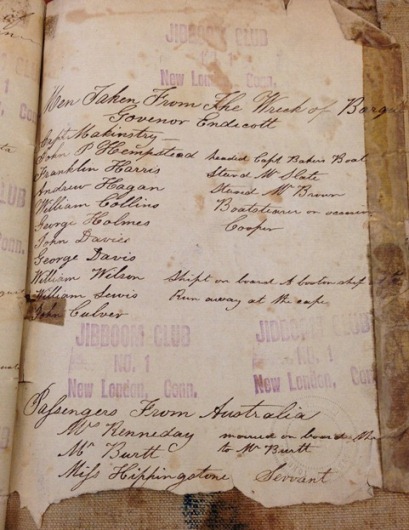 JIBBOOM CLUB
NO. 1
New London, Conn.
Men Taken From The Wreck of Barque
Govenor Endicott
Capt Makinstry
John P Hempstead headed Capt Bakers Boat
Franklin Harris Sterd Mr Slate
Andrew Hagan Sterd Mr Brown
William Collins Boatstearer on
George Holmes Cooper
John Davies
George Davis
William Wilson Shipt on board A boston ship at the
William Lewis Run away at the cape
John Culver
JIBBOOM CLUB
NO. 1
New London, Conn.
JIBBOOM
NO. 1
New London
Passengers From Australia
Mrs Kenneday married on board
Mr Burtt to Mr Burtt
Miss Hippingstone Servant